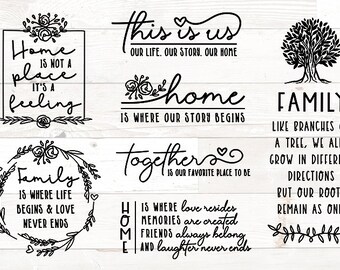 Home
IS NOT A
place
IT'S A
feeling
this is us
OUR LIFE. OUR STORY. OUR HOME
home
IS WHERE OUR STORY BEGINS
FAMILY
LIKE BRANCHES O
A TREE, WE ALL
GROW IN DIFFEREN
DIRECTIONS
BUT OUR ROOT
REMAIN AS ONE
Family
IS WHERE LIFE
BEGINS & LOVE
NEVER ENDS
together
IS OUR FAVORITE PLACE TO BE
HOME
IS WHERE love resides
MEMORIES are created
FRIENDS always belong
AND laughter never ends